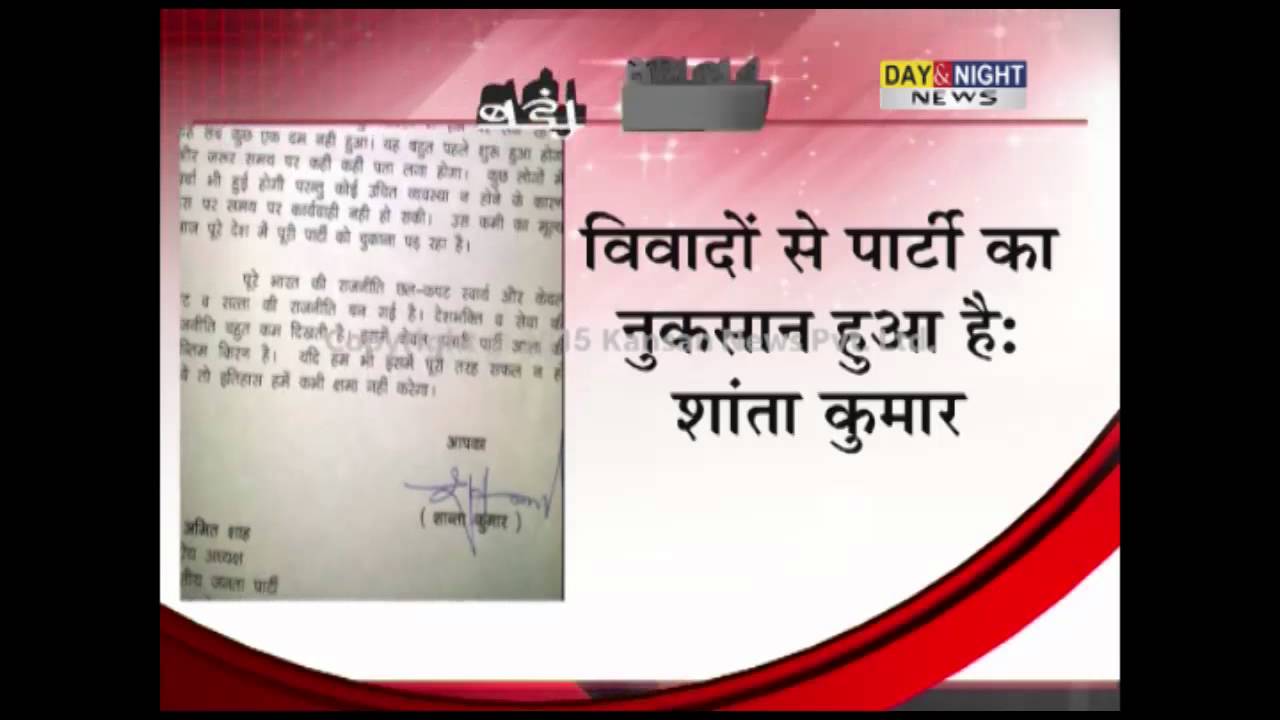 DAY & NIGHT
NEWS
बड़ी
सब कुछ एक दम नही हुआ। यह बहुत पहले शुरू हुआ
जरूर समय पर कही कही पता लगा होगा। कुछ लोगों
भी हुई होगी परन्तु कोई उचित व्यवस्था न होने के कारण
पर समय पर कार्यवाही नही हो सकी। उस कमी का
पूरे देश में पूरी पार्टी को चुकाना पड़ रहा है।
पूरे भारत की राजनीति छल-कपट स्वार्थ और केवल
व सत्ता की राजनीति बन गई है। देशभक्ति व सेवा
बहुत कम दिखती है। पार्टी
किरण है। यदि हम भी इसमें पूरी तरह सफल न
तो इतिहास हमें कभी क्षमा नही करेगा।
आपका
( शान्ता कुमार )
अमित शाह
अध्यक्ष
जनता पार्टी
विवादों से पार्टी का
नुकसान हुआ है:
शांता कुमार
Copyright 15 Kansan News Pvt. Ltd.